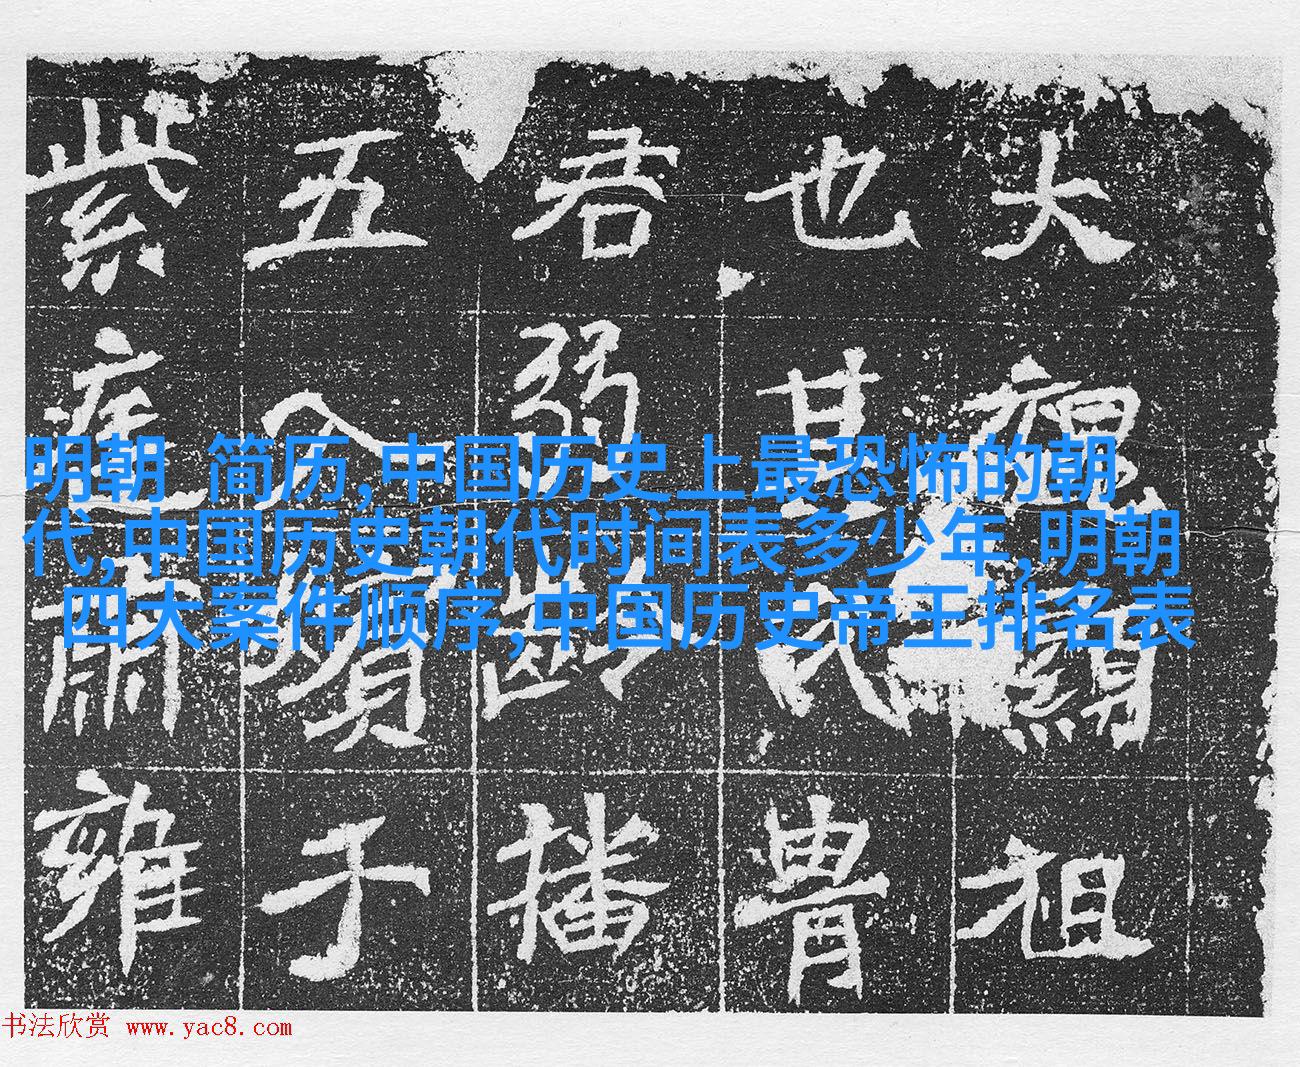 大祖
也其氏胄
君弱齡播
五于
紫庭肅雍
明朝 简历,中国历史上最恐怖的朝
代,中国历史朝代时间表多少年,明朝
四大案件顺序,中国历史帝王排名表
书法欣赏 www.yac8.com